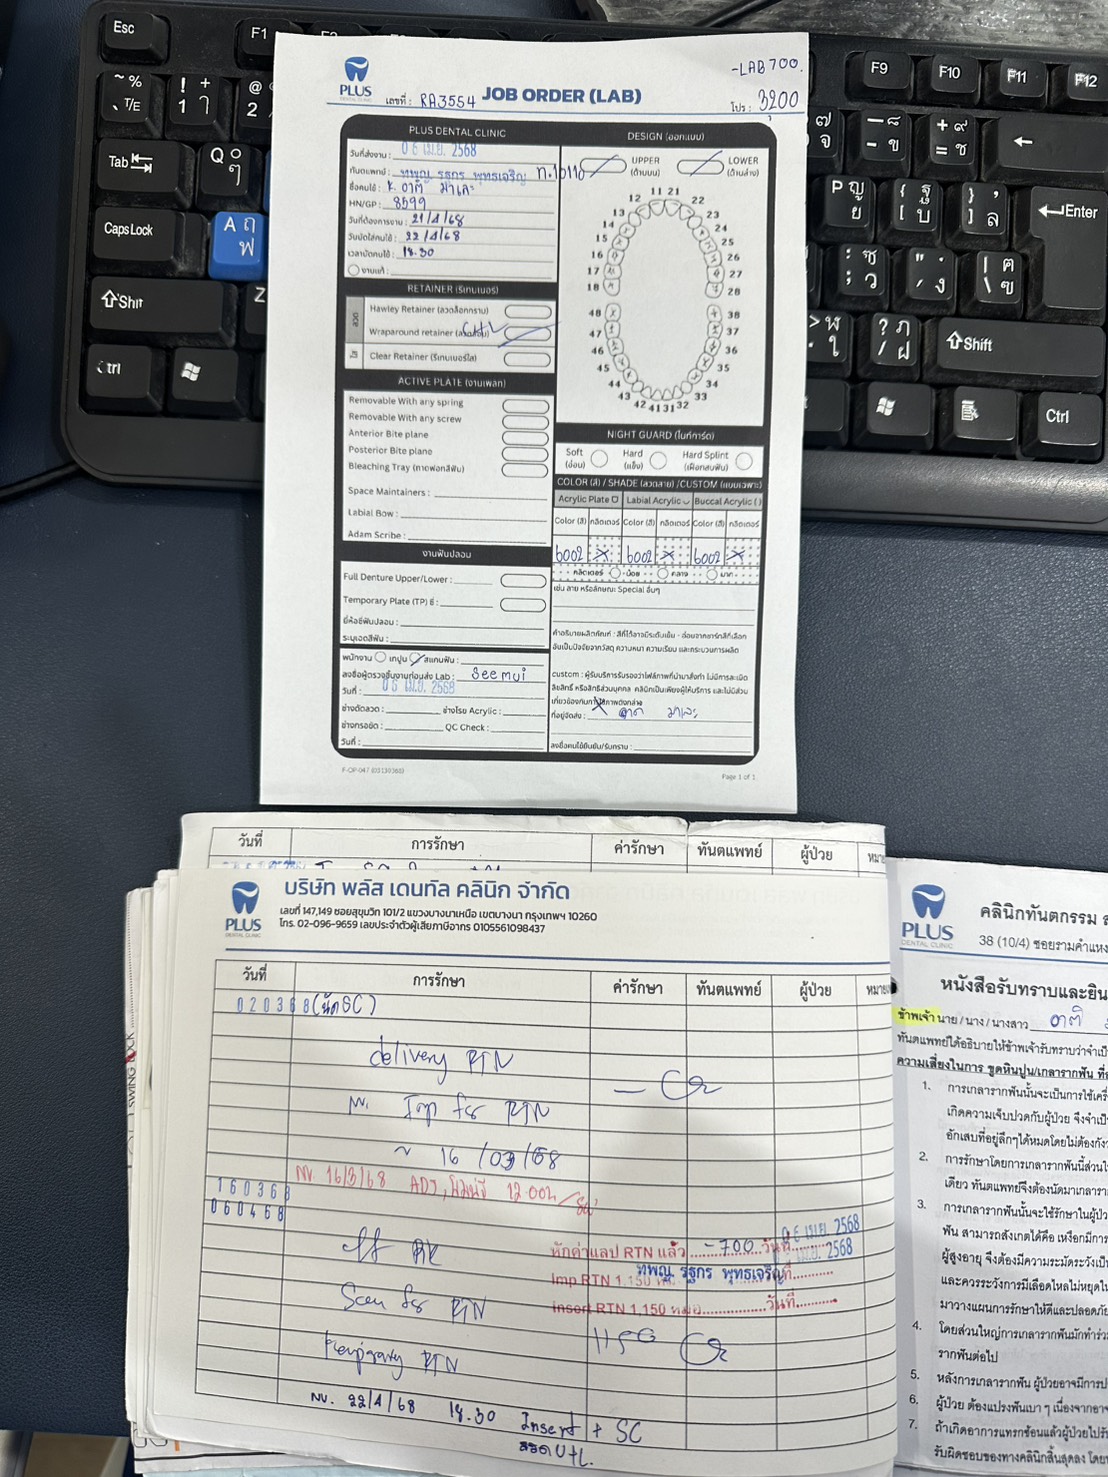 Esc
F1
F9
F10
F11
F12
Tab
CapsLock
Shift
Ctrl
Enter
Shift
Ctrl
PLUS
DENTAL CLINIC
เลขที่ : RA3554
JOB ORDER (LAB)
-LAB 700.
โปร : 3200
PLUS DENTAL CLINIC
วันที่ส่งงาน : 06 เม.ย. 2568
ทันตแพทย์ : ทพญ รุฐกร พุทธเจริญ
ชื่อคนไข้ : K. อาติ มาเละ
HN/GP : 8599
วันที่ต้องการงาน : 21/4/68
วันนัดใส่คนไข้ : 22/4/68
เวลานัดคนไข้ : 18.30
งานแก้ :
RETAINER (รีเทนเนอร์)
ลวด
Hawley Retainer (ลวดล็อกกราม)
Wraparound retainer
ใส
Clear Retainer (รีเทนเนอร์ใส)
ACTIVE PLATE (งานเพลท)
Removable With any spring
Removable With any screw
Anterior Bite plane
Posterior Bite plane
Bleaching Tray (ถาดฟอกสีฟัน)
Space Maintainers :
Labial Bow :
Adam Scribe :
งานฟันปลอม
Full Denture Upper/Lower :
Temporary Plate (TP) ซี่ :
ยี่ห้อซี่ฟันปลอม :
ระบุเฉดสีฟัน :
พนักงาน เทปูน สแกนฟัน :
ลงชื่อผู้ตรวจชิ้นงานก่อนส่ง Lab : Seemui
วันที่ : 06 เม.ย. 2568
ช่างดัดลวด : ช่างโรย Acrylic :
ช่างกรอขัด : QC Check :
วันที่ :
DESIGN (ออกแบบ)
UPPER (ด้านบน)
LOWER (ด้านล่าง)
11 21
12 22
13 23
14 24
15 25
16 26
17 27
18 28
48 38
47 37
46 36
45 35
44 34
43 33
42 41 31 32
NIGHT GUARD (ไนท์การ์ด)
Soft (อ่อน)
Hard (แข็ง)
Hard Splint (เฝือกสบฟัน)
COLOR (สี) / SHADE (ลวดลาย) /CUSTOM (แบบเฉพาะ)
Acrylic Plate Labial Acrylic Buccal Acrylic
Color (สี) กลิตเตอร์ Color (สี) กลิตเตอร์ Color (สี) กลิตเตอร์
6002 X 6002 X 6002 X
กลิตเตอร์ น้อย กลาง มาก
เช่น ลาย หรือลักษณะ Special อื่นๆ
คำอธิบายผลิตภัณฑ์ : สีที่ได้อาจมีระดับเข้ม - อ่อนจากชาร์ทสีที่เลือก
อันเป็นปัจจัยจากวัสดุ ความหนา ความเรียบ และกระบวนการผลิต
custom : ผู้รับบริการรับรองว่าไฟล์ภาพที่นำมาสั่งทำ ไม่มีการละเมิด
ลิขสิทธิ์ หรือสิทธิส่วนบุคคล คลินิกเป็นเพียงผู้ให้บริการ และไม่มีส่วน
ที่อยู่จัดส่ง :
ลงชื่อคนไข้ยืนยัน/รับทราบ :
Page 1 of 1
วันที่ การรักษา ค่ารักษา ทันตแพทย์ ผู้ป่วย
PLUS
DENTAL CLINIC
บริษัท พลัส เดนทัล คลินิก จำกัด
เลขที่ 147,149 ซอยสุขุมวิท 101/2 แขวงบางนาเหนือ เขตบางนา กรุงเทพฯ 10260
โทร. 02-096-9659 เลขประจำตัวผู้เสียภาษีอากร 0105561098437
วันที่ การรักษา ค่ารักษา ทันตแพทย์ ผู้ป่วย
020368 (นัดSC)
delivery RTN
NV. Imp for RTN
~ 16/03/68
NV. 16/3/68
160368
060468
off
หักค่าแลป RTN แล้ว -700 วันที่ 06 เม.ย. 2568
Imp RTN 1,150
ทพญ รุฐกร พุทธเจริญ
Scan for RTN
Insert RTN 1,150 หมอ วันที่
temporary RTN
NV. 22/4/68 18.30 Insert + SC
PLUS
DENTAL CLINIC
คลินิกทันตกรรม
38 (10/4) ซอยรามคำแหง
หนังสือรับทราบและยิน
ข้าพเจ้า นาย/นาง/นางสาว อาติ
ทันตแพทย์ได้อธิบายให้ข้าพเจ้ารับทราบว่า
ความเสี่ยงในการ ขูดหินปูน/เกลารากฟัน
1. การเกลารากฟันนั้นจะเป็นการใช้
เกิดความเจ็บปวดกับผู้ป่วย
อักเสบที่อยู่ลึกๆได้หมดโดยไม่ต้อง
2. การรักษาโดยการเกลารากฟันนี้
เดียว ทันตแพทย์จึงต้องนัดมา
3. การเกลารากฟันนั้นจะใช้รักษาใน
ฟัน สามารถสังเกตได้คือ เหงือก
ผู้สูงอายุ จึงต้องมีความระมัดระวัง
และควรระวังการมีเลือดไหลไม่หยุด
มาวางแผนการรักษาให้ดีและปลอดภัย
4. โดยส่วนใหญ่การเกลารากฟันมัก
รากฟันต่อไป
5. หลังการเกลารากฟัน ผู้ป่วยอาจมี
6. ผู้ป่วย ต้องแปรงฟันเบา ๆ เนื่องจาก
7. ถ้าเกิดอาการแทรกซ้อนแล้วผู้ป่วย
รับผิดชอบของทางคลินิกสิ้นสุดลง